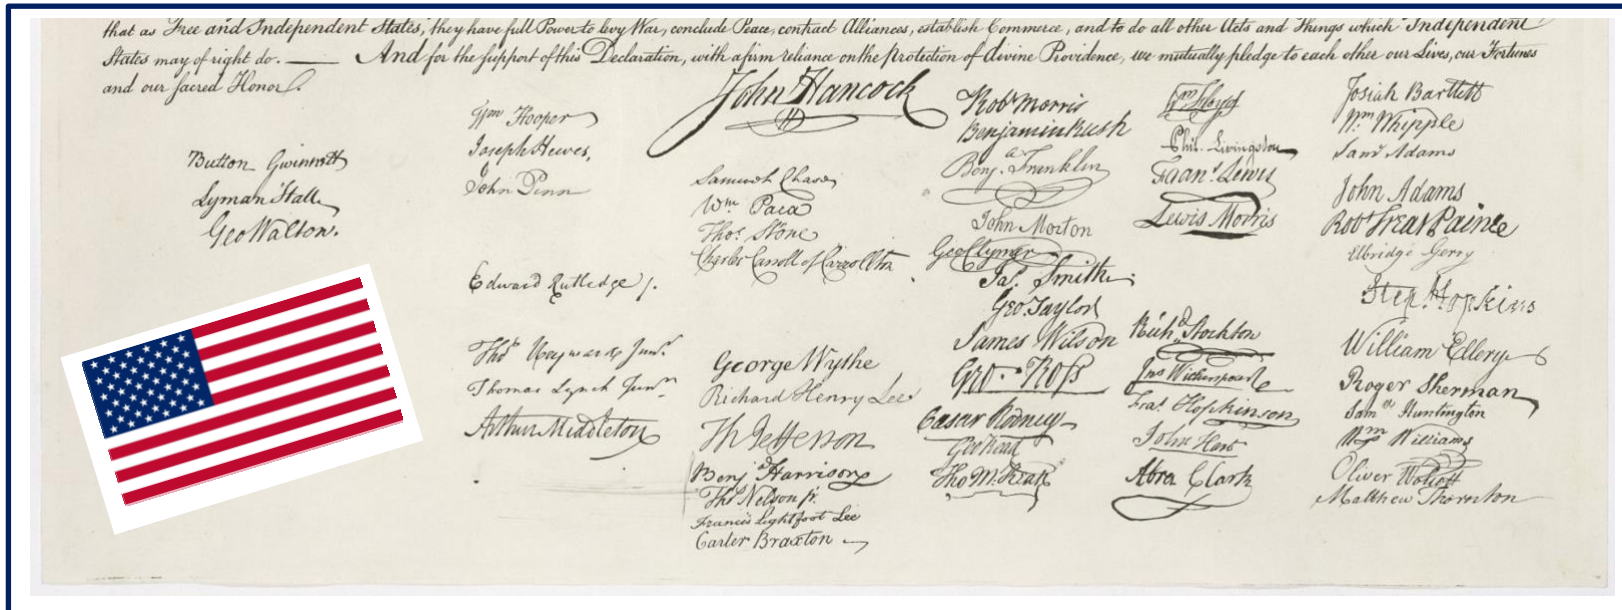 that as Free and Independent States, they have full Power to levy War, conclude Peace, contract Alliances, establish Commerce, and to do all other Acts and Things which Independent
States may of right do. — And for the support of this Declaration, with a firm reliance on the Protection of divine Providence, we mutually pledge to each other our Lives, our Fortunes
and our sacred Honor.
Button Gwinnett
Lyman Hall
Geo Walton.
Wm Hooper
Joseph Hewes,
John Penn
Edward Rutledge /.
Thos Heyward Junr.
Thomas Lynch Junr
Arthur Middleton
John Hancock
Samuel Chase
Wm Paca
Thos Stone
Charles Carroll of Carrollton
George Wythe
Richard Henry Lee
Th Jefferson
Benj Harrison
Thos Nelson jr.
Francis Lightfoot Lee
Carter Braxton
Robt Morris
Benjamin Rush
Benj. Franklin
John Morton
Geo Clymer
Jas. Smith
Geo. Taylor
James Wilson
Geo. Ross
Caesar Rodney
Geo Read
Tho M:Kean
Wm Floyd
Phil. Livingston
Frans. Lewis
Lewis Morris
Richd Stockton
Jno Witherspoon
Fras. Hopkinson
John Hart
Abra Clark
Josiah Bartlett
Wm Whipple
Saml Adams
John Adams
Robt Treat Paine
Elbridge Gerry
Step. Hopkins
William Ellery
Roger Sherman
Saml Huntington
Wm Williams
Oliver Wolcott
Matthew Thornton